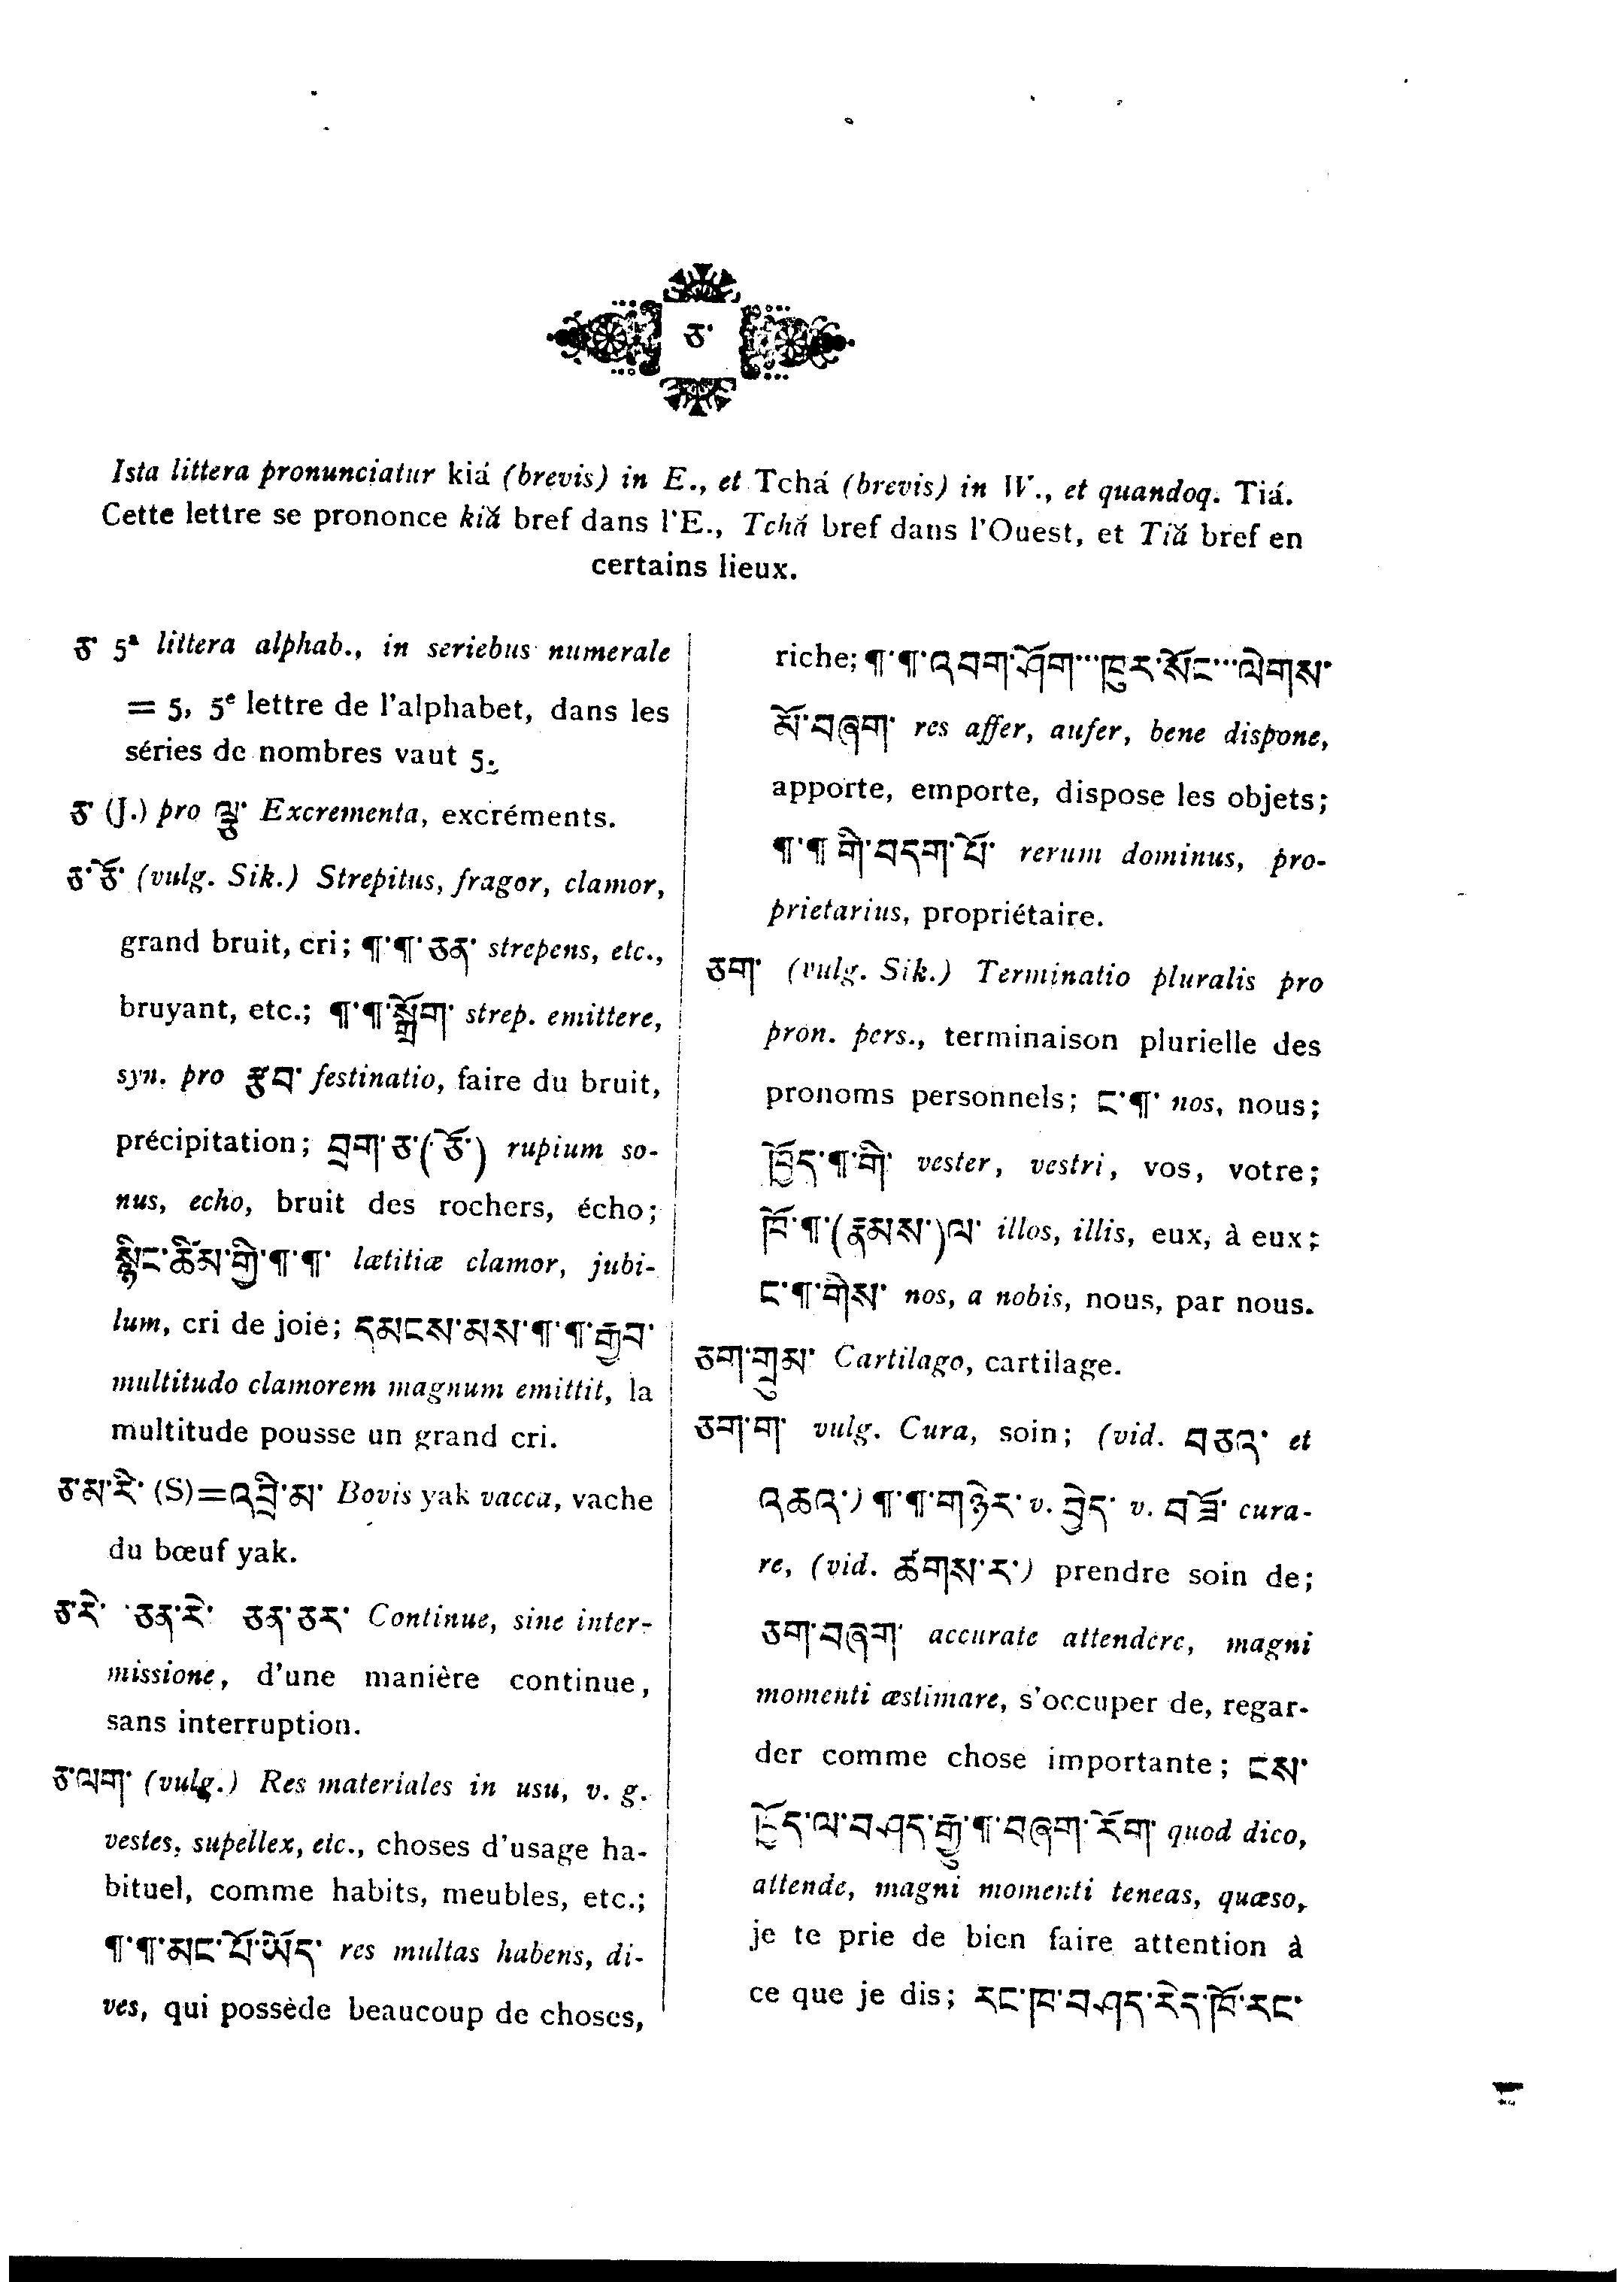 ཅ་
Ista littera pronunciatur kiá (brevis) in E., et Tchá (brevis) in W., et quandoq. Tiá.
Cette lettre se prononce kiă bref dans l'E., Tchă bref dans l'Ouest, et Tiă bref en
certains lieux.
ཅ་ 5ª littera alphab., in seriebus numerale
= 5, 5ᵉ lettre de l'alphabet, dans les
séries de nombres vaut 5.
ཅ་ (J.) pro ལྕུ་ Excrementa, excréments.
ཅ་ཅོ་ (vulg. Sik.) Strepitus, fragor, clamor,
grand bruit, cri; ¶་¶་ཅན་ strepens, etc.,
bruyant, etc.; ¶་¶་སྒྲོག་ strep. emittere,
syn. pro རྩབ་ festinatio, faire du bruit,
précipitation; བྲག་ཅ་(ཅོ་) rupium so-
nus, echo, bruit des rochers, écho;
སྙིང་ཚིམ་གྱི་¶་¶་ lætitiæ clamor, jubi-
lum, cri de joie; དམངས་མས་¶་¶་རྒྱབ་
multitudo clamorem magnum emittit, la
multitude pousse un grand cri.
ཅ་མ་རི་ (S)=འབྲི་མ་ Bovis yak vacca, vache
du bœuf yak.
ཅ་རེ་ ཅན་རེ་ ཅན་ཅར་ Continue, sine inter-
missione, d'une manière continue,
sans interruption.
ཅ་ལག་ (vulg.) Res materiales in usu, v. g.
vestes, supellex, etc., choses d'usage ha-
bituel, comme habits, meubles, etc.;
¶་¶་མང་པོ་ཡོད་ res multas habens, di-
ves, qui possède beaucoup de choses,
riche; ¶་¶་འབག་ཤོག་··ཁུར་སོང་··ལེགས་
མོ་བཞག་ res affer, aufer, bene dispone,
apporte, emporte, dispose les objets;
¶་¶་གི་བདག་པོ་ rerum dominus, pro-
prietarius, propriétaire.
ཅག་ (vulg. Sik.) Terminatio pluralis pro
pron. pers., terminaison plurielle des
pronoms personnels; ང་¶་ nos, nous;
ཁྱོད་¶་གི་ vester, vestri, vos, votre;
ཁོ་¶་(རྣམས་)ལ་ illos, illis, eux, à eux;
ང་¶་གིས་ nos, a nobis, nous, par nous.
ཅག་ཀྲུམ་ Cartilago, cartilage.
ཅག་ག་ vulg. Cura, soin; (vid. བཅའ་ et
འཆའ་) ¶་¶་གཉེར་ v. བྱེད་ v. བཟོ་ cura-
re, (vid. ཚགས་ར་) prendre soin de;
ཅག་བཞག་ accurate attendere, magni
momenti æstimare, s'occuper de, regar-
der comme chose importante; ངས་
ཁྱོད་ལ་བཤད་རྒྱུ་¶་བཞག་རོག་ quod dico,
attende, magni momenti teneas, quæso,
je te prie de bien faire attention à
ce que je dis; རང་ཁ་བཤད་རེད་ཁོ་རང་